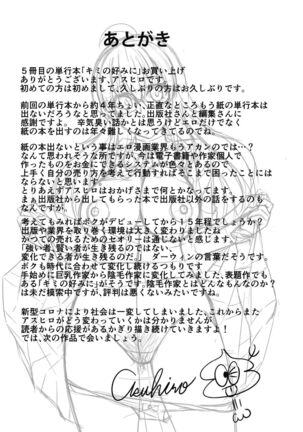 あとがき
５冊目の単行本「キミの好みに」お買い上げ
ありがとうございます、アスヒロです。
初めての方は初めまして。久しぶりの方はお久しぶりです。
前回の単行本から約４年ちょい、正直なところもう紙の単行本は
出ないだろうなと思ってました。出版社さんと編集さんに
感謝ですよ。辛気臭い話かとは思うけどエロだけでなく
紙の本を出すのは年々難しくなってきてるのでね。
紙の本出ないという事はエロ漫画業界もうアカンのでは…？
なんて思われそうな所ですが、今は電子書籍や作家個人で
作ったものをお金にできるシステムが色々とあるので
上手く自分の売り方を考えて行動すればそこまで困ったことには
ならないと思います。
とりあえずアスヒロはおかげさまで何とかなってます。
まぁ出版社から出してもらった本で出版社以外の話をするのも
なんですが。
考えてみればボクがデビューしてから１５年程でしょうか？
出版や業界を取り巻く環境は大きく変わりましたね
かつての売れるためのセオリーは通じないと感じます。
「強い者、賢い者が生き残るのではない。
変化できる者が生き残るのだ。」ダーウィンの言葉だそうです。
ボクも時代に合わせて変化し続けるつもりです
手始めに巨乳作家から陰毛作家に変化してみました、表題作でも
ある「キミの好みに」がそうです。陰毛作家とはどんなもんなのか？
は未だ模索中ですが、評判は悪くないみたいですね。
新型コロナにより社会は一変してしまいました、これからまた
アスヒロがどう変わっていくかは分かりませんが
読者からの応援があるかぎり描き続けていきますよ！
では、次の作品で会いましょう。
Asuhiro